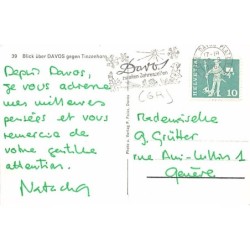 39 Blick über DAVOS gegen Tinzenhorn
Depuis Davos,
je vous adresse
mes meilleures
pensées et vous
remercie de
votre gentille
attention.
Natacha
Davos
HELVETIA
10
Mademoiselle
G. Grütter
rue Ami-Lullin 1
Genève